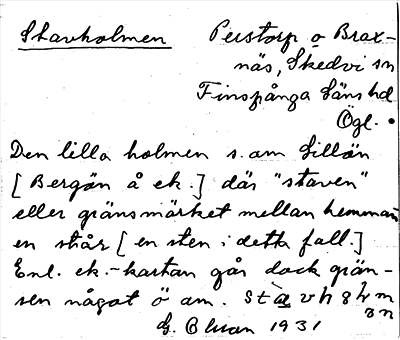 Stavholmen Perstorp o Brax-
näs, Skedvi sn
Finspånga läns hd
Ögl.
Den lilla holmen s. om Lillön
[Bergön å ek.] där "staven"
eller gränsmärket mellan hemmanen
en står [en sten i detta fall.]
Enl. ek.-kartan går dock grän-
sen något ö om.
G. Bluan 1931